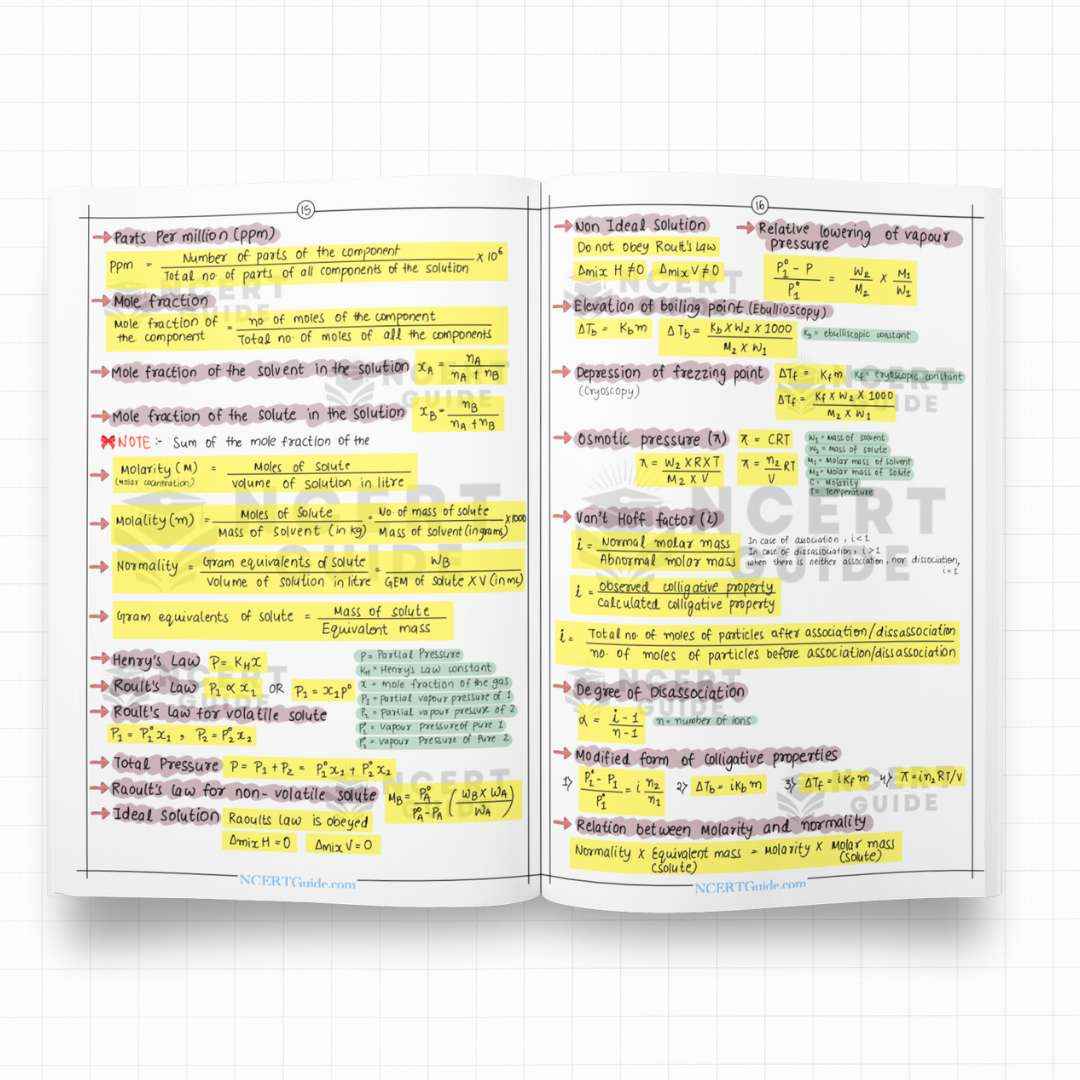 15
Parts Per million (PPm)
PPm = Number of parts of the component / Total no of parts of all components of the solution × 10⁶
Mole fraction
Mole fraction of the component = no of moles of the component / Total no. of moles of all the components
Mole fraction of the solvent in the solution xA = nA / nA + nB
Mole fraction of the solute in the solution xB = nB / nA + nB
NOTE :- Sum of the mole fraction of the
Molarity (M) = Moles of solute / volume of solution in litre
Molality (m) = Moles of Solute / Mass of solvent (in kg) = No. of mass of solute / Mass of solvent (in grams) × 1000
Normality = Gram equivalents of solute / Volume of solution in litre = WB / GEM of solute X V (in ml)
Gram equivalents of solute = Mass of solute / Equivalent mass
Henry's Law P = KHx
Roult's Law P1 ∝ x1 OR P1 = x1P°
Roult's Law for volatile solute
P1 = P1°x1 , P2 = P2°x2
P = Partial Pressure
KH = Henry's Law constant
x = mole fraction of the gas
P1 = Partial vapour pressure of 1
P2 = Partial vapour pressure of 2
P1° = vapour pressure of pure 1
P2° = vapour Pressure of Pure 2
Total Pressure P = P1 + P2 = P1°x1 + P2°x2
Raoult's law for non-volatile solute MB = PA° / PA° - PA (WB X WA / WA)
Ideal Solution Raoults law is obeyed
Δmix H = 0 Δmix V = 0
NCERTGuide.com
16
Non Ideal Solution
Do not obey Roult's Law
Δmix H ≠ 0 Δmix V ≠ 0
Relative lowering of vapour
pressure
P1° - P / P1° = W2 / M2 × M1 / W1
Elevation of boiling point (Ebullioscopy)
ΔTb = Kbm ΔTb = Kb X W2 X 1000 / M2 X W1 Kb = ebullioscopic constant
Depression of frezzing point ΔTf = Kfm Kf = cryoscopic constant
(Cryoscopy)
ΔTf = Kf X W2 X 1000 / M2 X W1
Osmotic pressure (π) π = CRT
π = W2 X R X T / M2 X V π = n2 / V RT
W1 = Mass of solvent
W2 = mass of solute
M1 = Molar mass of solvent
M2 = Molar mass of solute
C = Molarity
T = Temperature
Van't Hoff factor (i)
i = Normal molar mass / Abnormal molar mass
In case of association, i < 1
In case of dissasociation, i > 1
when there is neither association, nor dissociation,
i = 1
i = observed colligative property / Calculated colligative property
i = Total no. of moles of particles after association/dissassociation / no. of moles of particles before association/dissassociation
Degree of Disassociation
α = i - 1 / n - 1 n = number of ions
Modified form of colligative properties
1) P1° - P1 / P1° = i n2 / n1 2) ΔTb = iKbm 3) ΔTf = iKfm 4) π = in2RT/V
Relation between Molarity and normality
Normality X Equivalent mass = Molarity X Molar mass
(Solute) (Solute)
NCERTGuide.com
NCERT
GUIDE